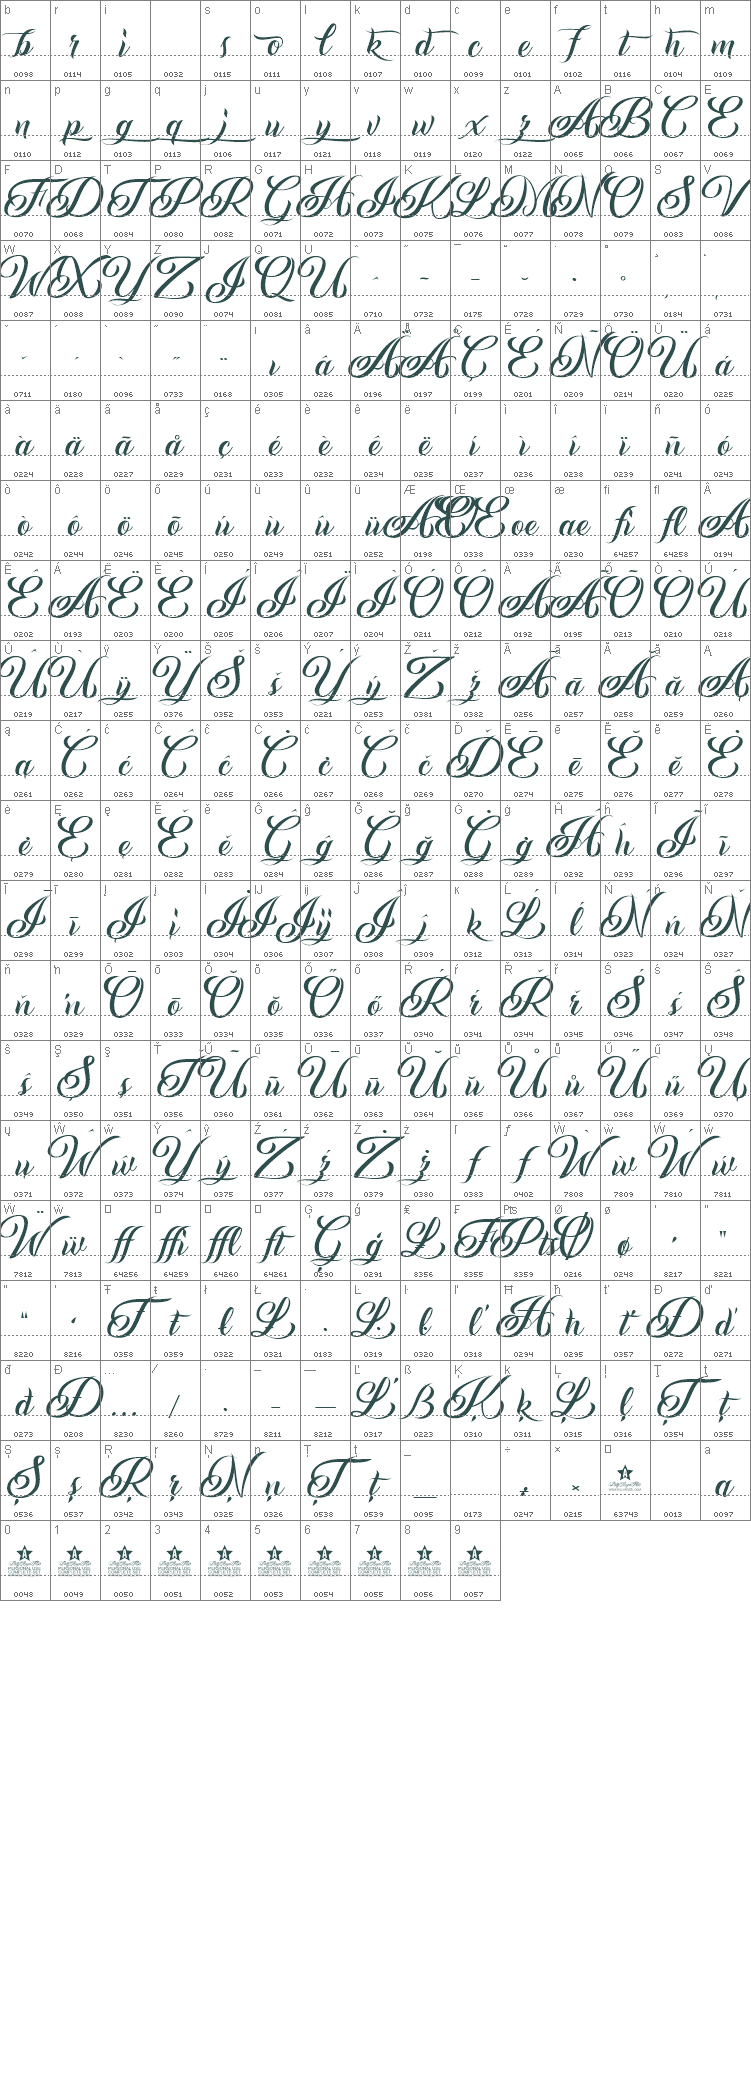 b r i s o l k d c e f t h m
b r i s o l k d c e f t h m
0098 0114 0105 0032 0115 0111 0108 0107 0100 0099 0101 0102 0116 0104 0109
n p g q j u y v w x z A B C E
n p g q j u y v w x z A B C E
0110 0112 0103 0113 0106 0117 0121 0118 0119 0120 0122 0065 0066 0067 0069
F D T P R G H I K L M N O S V
F D T P R G H I K L M N O S V
0070 0068 0084 0080 0082 0071 0072 0073 0075 0076 0077 0078 0079 0083 0086
W X Y Z J Q U
W X Y Z J Q U
0087 0088 0089 0090 0074 0081 0085 0710 0732 0175 0728 0729 0730 0184 0731
ı â Ä Å Ç É Ñ Ö Ü á
0711 0180 0096 0733 0168 0305 0226 0196 0197 0199 0201 0209 0214 0220 0225
à ä ã å ç é è ê ë í ì î ï ñ ó
à ä ã å ç é è ê ë í ì î ï ñ ó
0224 0228 0227 0229 0231 0233 0232 0234 0235 0237 0236 0238 0239 0241 0243
ò ô ö õ ú ù û ü Æ Œ œ æ fi fl Â
0242 0244 0246 0245 0250 0249 0251 0252 0198 0338 0339 0230 64257 64258 0194
Ê Á Ë È Í Î Ï Ì Ó Ô À Ã Õ Ò Ú
0202 0193 0203 0200 0205 0206 0207 0204 0211 0212 0192 0195 0213 0210 0218
Û Ù ÿ Ÿ Š š Ý ý Ž ž Ā ā Ă ă Ą
0219 0217 0255 0376 0352 0353 0221 0253 0381 0382 0256 0257 0258 0259 0260
ą Ć ć Ĉ ĉ Ċ ċ Č č Ď Ē ē Ĕ ĕ Ė
0261 0262 0263 0264 0265 0266 0267 0268 0269 0270 0274 0275 0276 0277 0278
ė Ę ę Ě ě Ĝ ĝ Ğ ğ Ġ ġ Ĥ ĥ Ĩ ĩ
0279 0280 0281 0282 0283 0284 0285 0286 0287 0288 0289 0292 0293 0296 0297
Ī ī Į į İ Ĳ ĳ Ĵ ĵ ĸ Ĺ ĺ Ń ń Ň
0298 0299 0302 0303 0304 0306 0307 0308 0309 0312 0313 0314 0323 0324 0327
ň ŉ Ō ō Ŏ ŏ Ő ő Ŕ ŕ Ř ř Ś ś Ŝ
0328 0329 0332 0333 0334 0335 0336 0337 0340 0341 0344 0345 0346 0347 0348
ŝ Ş ş Ť Ũ ũ Ū ū Ŭ ŭ Ů ů Ű ű Ų
0349 0350 0351 0356 0360 0361 0362 0363 0364 0365 0366 0367 0368 0369 0370
ų Ŵ ŵ Ŷ ŷ Ź ź Ż ż ſ ƒ Ẁ ẁ Ẃ ẃ
0371 0372 0373 0374 0375 0377 0378 0379 0380 0383 0402 7808 7809 7810 7811
Ẅ ẅ ff ffi ffl ft Ģ ģ ₤ ₣ ₧ Ø ø ’ ”
7812 7813 64256 64259 64260 64261 0290 0291 8356 8355 8359 0216 0248 8217 8221
“ ‘ Ŧ ŧ ł Ł · Ŀ ŀ ľ Ħ ħ ť Đ ď
8220 8216 0358 0359 0322 0321 0183 0319 0320 0318 0294 0295 0357 0272 0271
đ Ð … ⁄ . – — Ľ ß Ķ ķ Ļ ļ Ţ ţ
0273 0208 8230 8260 8729 8211 8212 0317 0223 0310 0311 0315 0316 0354 0355
Ș ș Ŗ ŗ Ņ ņ Ț ț _ ÷ × a
0536 0537 0342 0343 0325 0326 0538 0539 0095 0173 0247 0215 63743 0013 0097
0 1 2 3 4 5 6 7 8 9
0048 0049 0050 0051 0052 0053 0054 0055 0056 0057